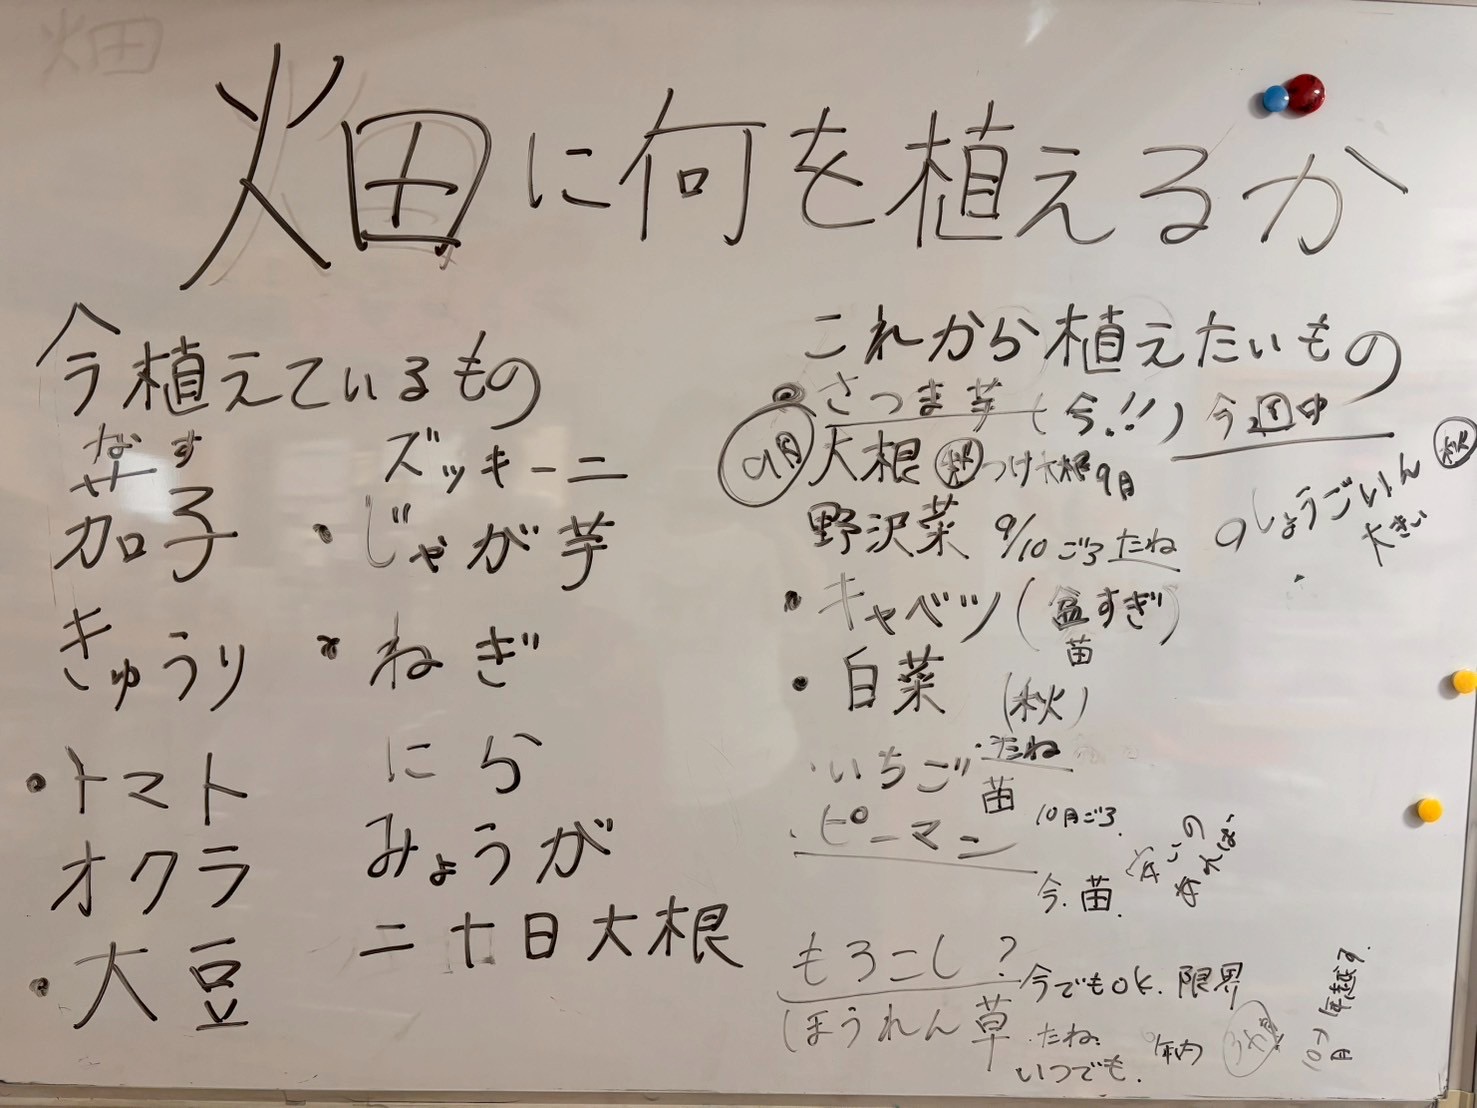 畑
畑に何を植えるか
今植えているもの
なす
茄子
きゅうり
・トマト
オクラ
・大豆
ズッキーニ
・じゃが芋
・ねぎ
にら
みょうが
二十日大根
これから植えたいもの
・さつま芋(今!!) 今週中
9月 大根 秋 つけ大根 9月
野沢菜 9/10ごろ たね
しょうごいん 秋
大きい
・キャベツ(盆すぎ)
苗
・白菜 (秋)
・いちご ・たね
苗
10月ごろ.
・ピーマン
今.苗.
あれば
もろこし? 今でもOK. 限界
ほうれん草 ・たね.
いつでも.
年内
10月
年越す.